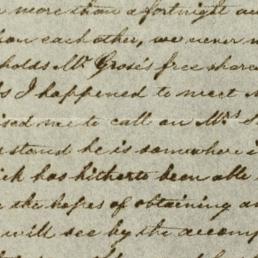 more than a fortnight an
each other, we never m
holds Mr. Grose's free share
As I happened to meet M
ised me to call on Mrs. S
stand he is somewhere i
ich has hitherto been able
the hopes of obtaining an
will see by the accomp